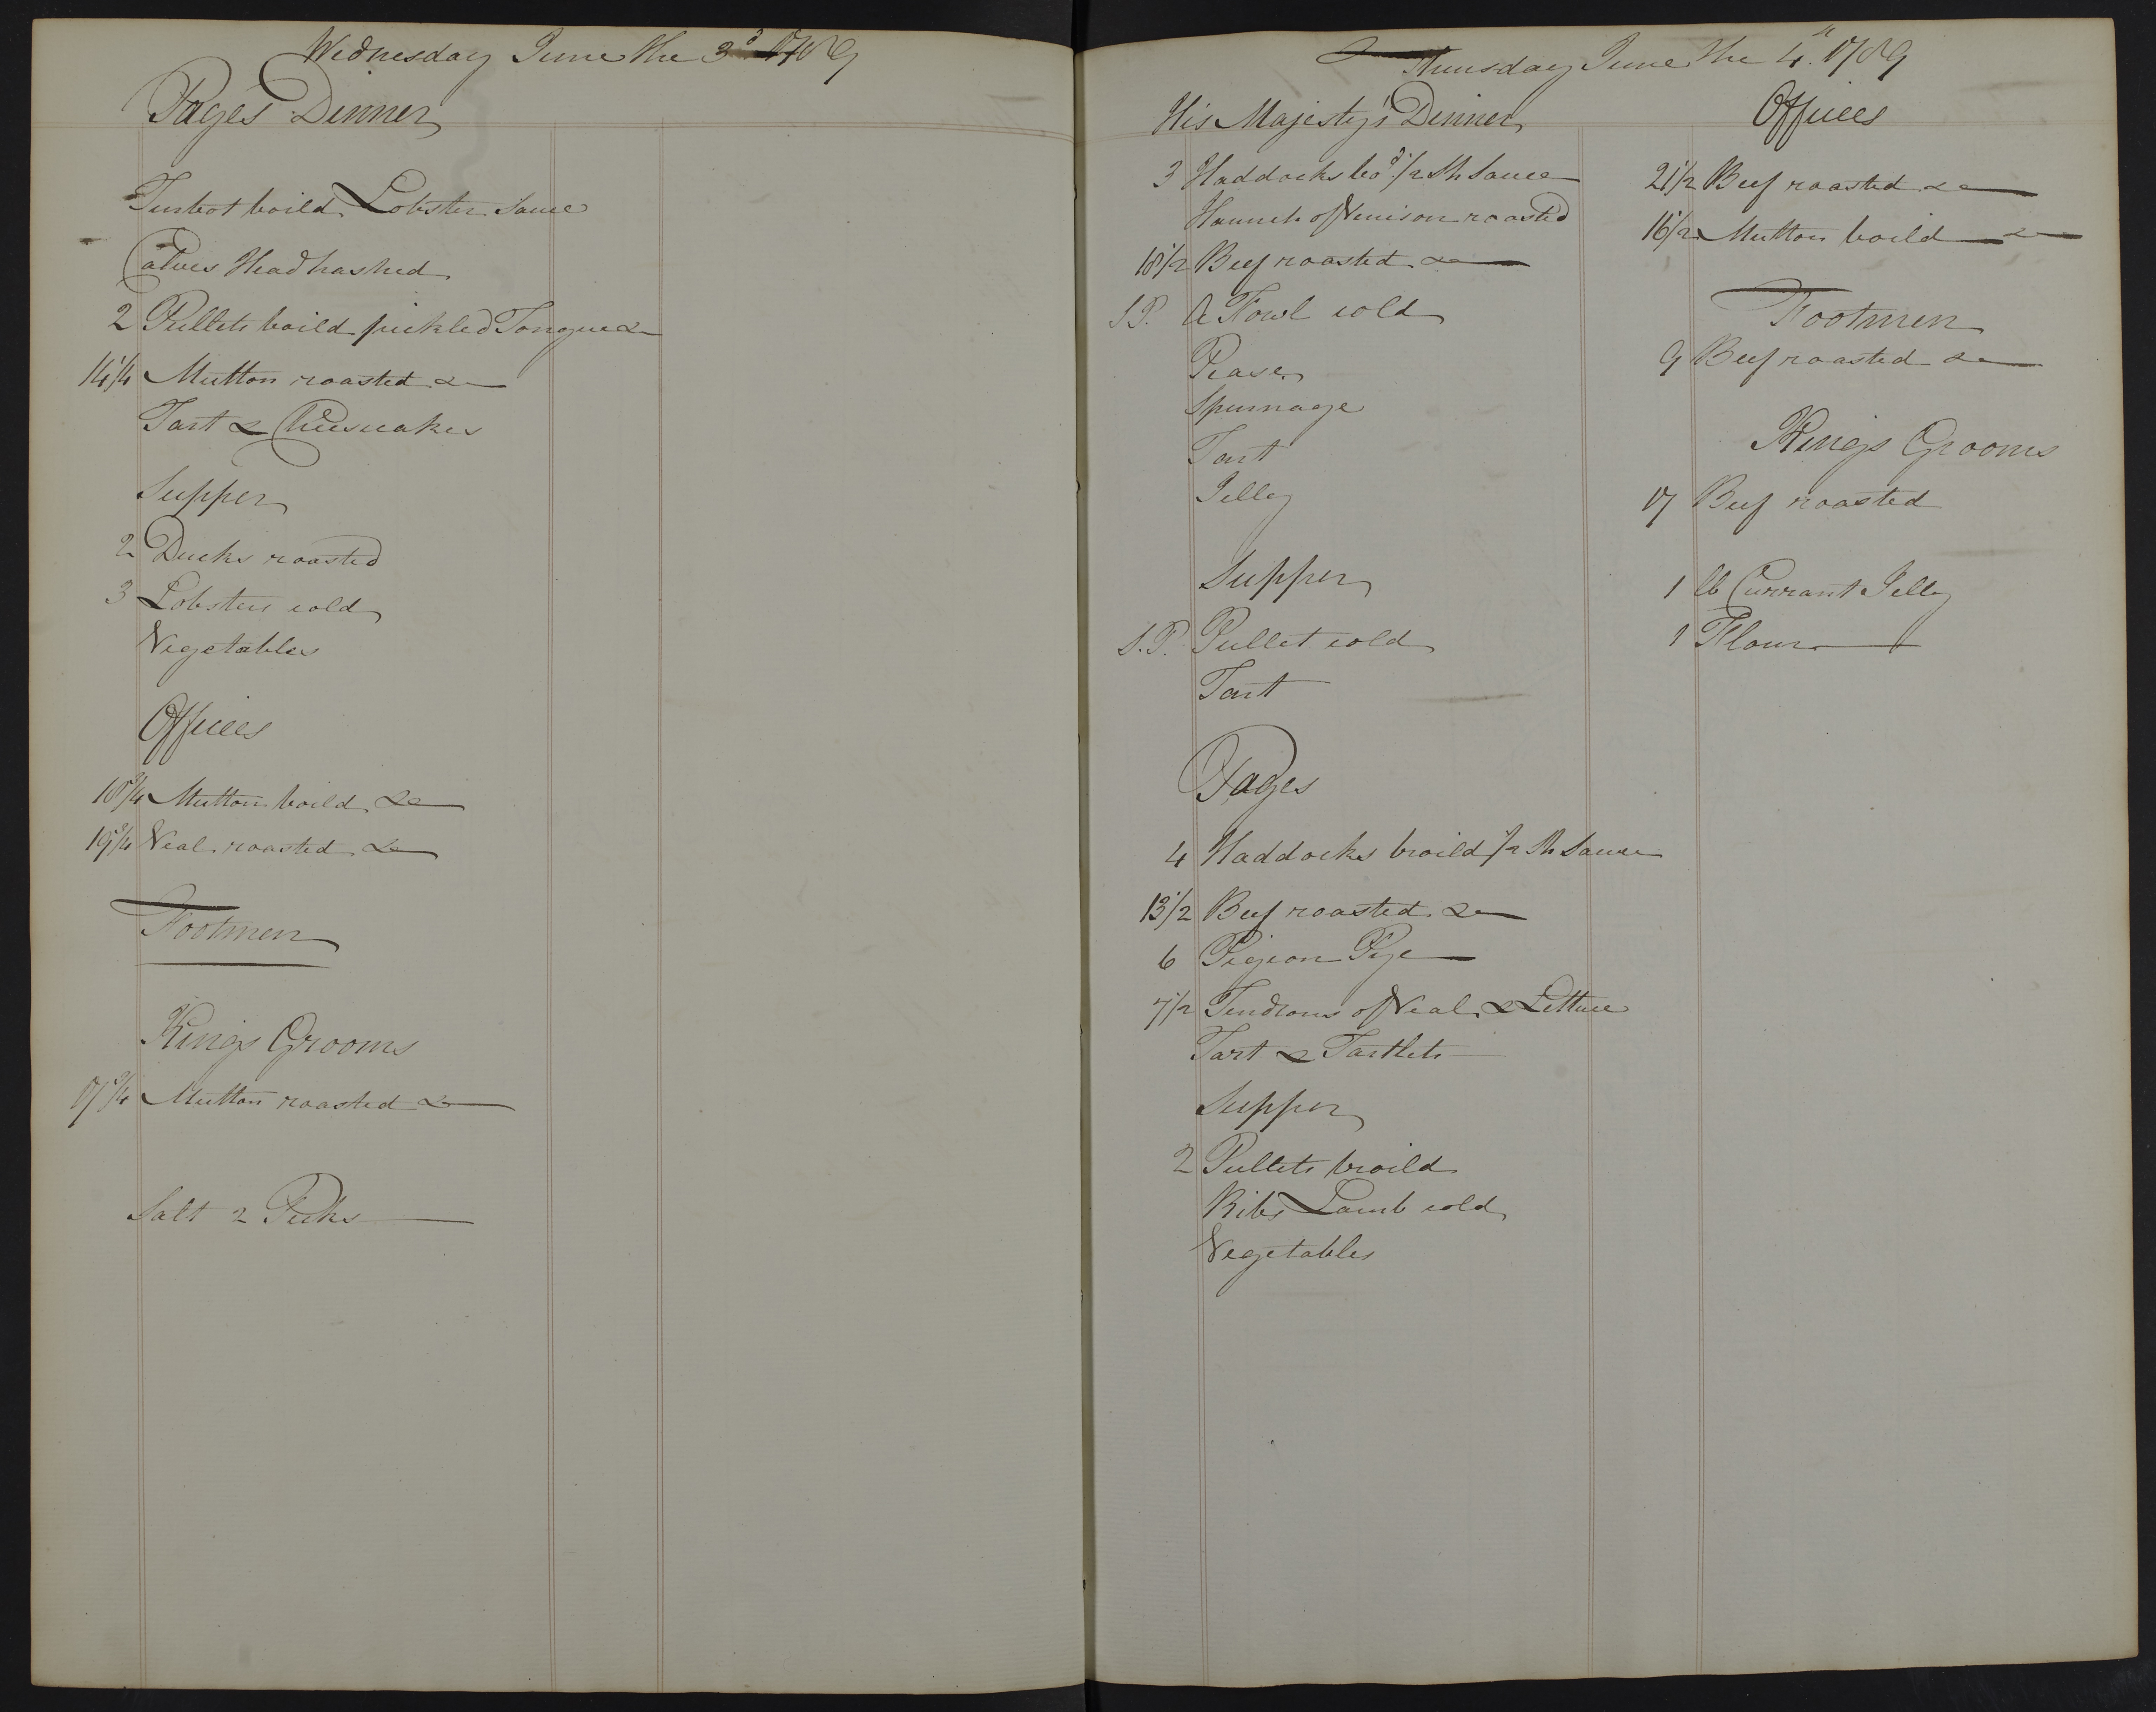 Wednesday June the 3d 1789
Pages Dinner
Turbot boild Lobster Sauce
Calves Head hashed
2 Pullets boild pickled Tongue &c
14 1/4 Mutton roasted &c
Tart & Cheescakes
Supper
2 Ducks roasted
3 Lobsters cold
Vegetables
Offices
18 3/4 Mutton boild &c
19 3/4 Veal roasted &c
Footmen
Kings Grooms
17 3/4 Mutton roasted &c
Salt 2 Pecks
Thursday June the 4th 1789
His Majesty's Dinner
3 Haddocks bod 1/2 Sh Sauce
Haunch of Venison roasted
18 1/2 Beef roasted &c
S.P. A Fowl cold
Pease
Spinnage
Tart
Jelley
Supper
S.P. Pullet cold
Tart
Pages
4 Haddocks broild 1/2 Sh Sauce
13 1/2 Beef roasted &c
6 Pigeon Pye
7 1/2 Tendrons of Veal & Lettuce
Tart & Tartlets
Supper
2 Pullets broild
Ribs Lamb cold
Vegetables
Offices
21 1/2 Beef roasted &c
16 1/2 Mutton boild &c
Footmen
9 Beef roasted &c
Kings Grooms
17 Beef roasted
1 lb Currant Jelly
1 Flour